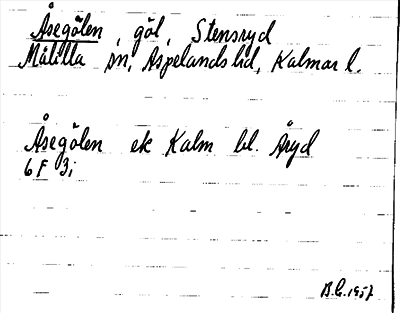 Åsegölen, göl, Stensryd
Målilla sn, Aspelands hd, Kalmar l.
Åsegölen ek Kalm bl. Åryd
6 F 3 i
B.G. 1957